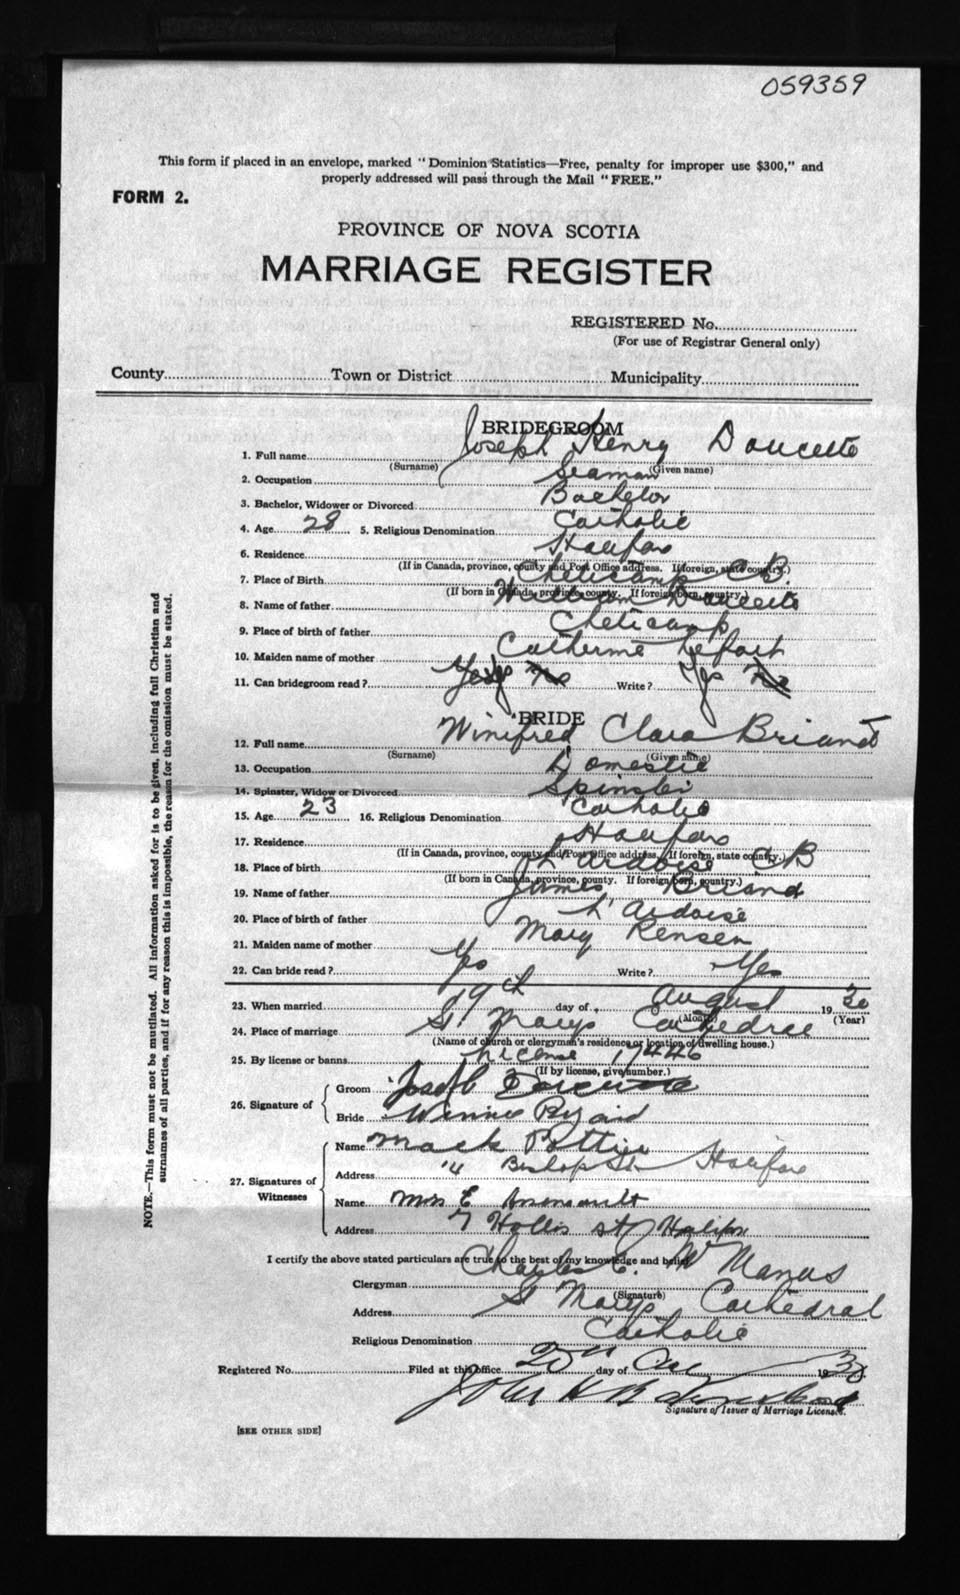 059359
This form if placed in an envelope, marked "Dominion Statistics—Free, penalty for improper use $300," and
properly addressed will pass through the Mail "FREE."
FORM 2.
PROVINCE OF NOVA SCOTIA
MARRIAGE REGISTER
REGISTERED No.
(For use of Registrar General only)
County Town or District Municipality
BRIDEGROOM
1. Full name Joseph Henry Doucette
(Surname) (Given name)
2. Occupation Seaman
3. Bachelor, Widower or Divorced Bachelor
4. Age 28 5. Religious Denomination Catholic
6. Residence Halifax
(If in Canada, province, county and Post Office address. If foreign, state country.)
7. Place of Birth Cheticamp C B.
(If born in Canada, province, county. If foreign born, country.)
8. Name of father William Doucette
9. Place of birth of father Cheticamp
10. Maiden name of mother Catherine
11. Can bridegroom read? Yes Yes No Write? Yes No
BRIDE
12. Full name Winifred Clara Briand
(Surname) (Given name)
13. Occupation Domestic
14. Spinster, Widow or Divorced Spinster
15. Age 23 16. Religious Denomination Catholic
17. Residence Halifax
(If in Canada, province, county and Post Office address. If foreign, state country.)
18. Place of birth L'Ardoise C B
(If born in Canada, province, county. If foreign born, country.)
19. Name of father James Briand
20. Place of birth of father L'Ardoise
21. Maiden name of mother Mary
22. Can bride read? Yes Write? Yes
23. When married 19th day of August 1930
(Month) (Year)
24. Place of marriage St Marys Cathedral
(Name of church or clergyman's residence or location of dwelling house.)
25. By license or banns License 17446
(If by license, give number.)
26. Signature of
Groom Joseph Doucette
Bride Winnie
27. Signatures of Witnesses
Name Mack Pottie
Address 14 Bishop St Halifax
Name Mrs E Arsenault
Address 7 Hollis st Halifax
I certify the above stated particulars are true to the best of my knowledge and belief.
Clergyman Charles C. McManus
(Signature)
Address St Marys Cathedral
Religious Denomination Catholic
Registered No. Filed at this office day of 1930
John H
Signature of Issuer of Marriage Licenses.
[SEE OTHER SIDE]
NOTE.—This form must not be mutilated. All information asked for is to be given, including full Christian and
surnames of all parties, and if for any reason this is impossible, the reason for the omission must be stated.